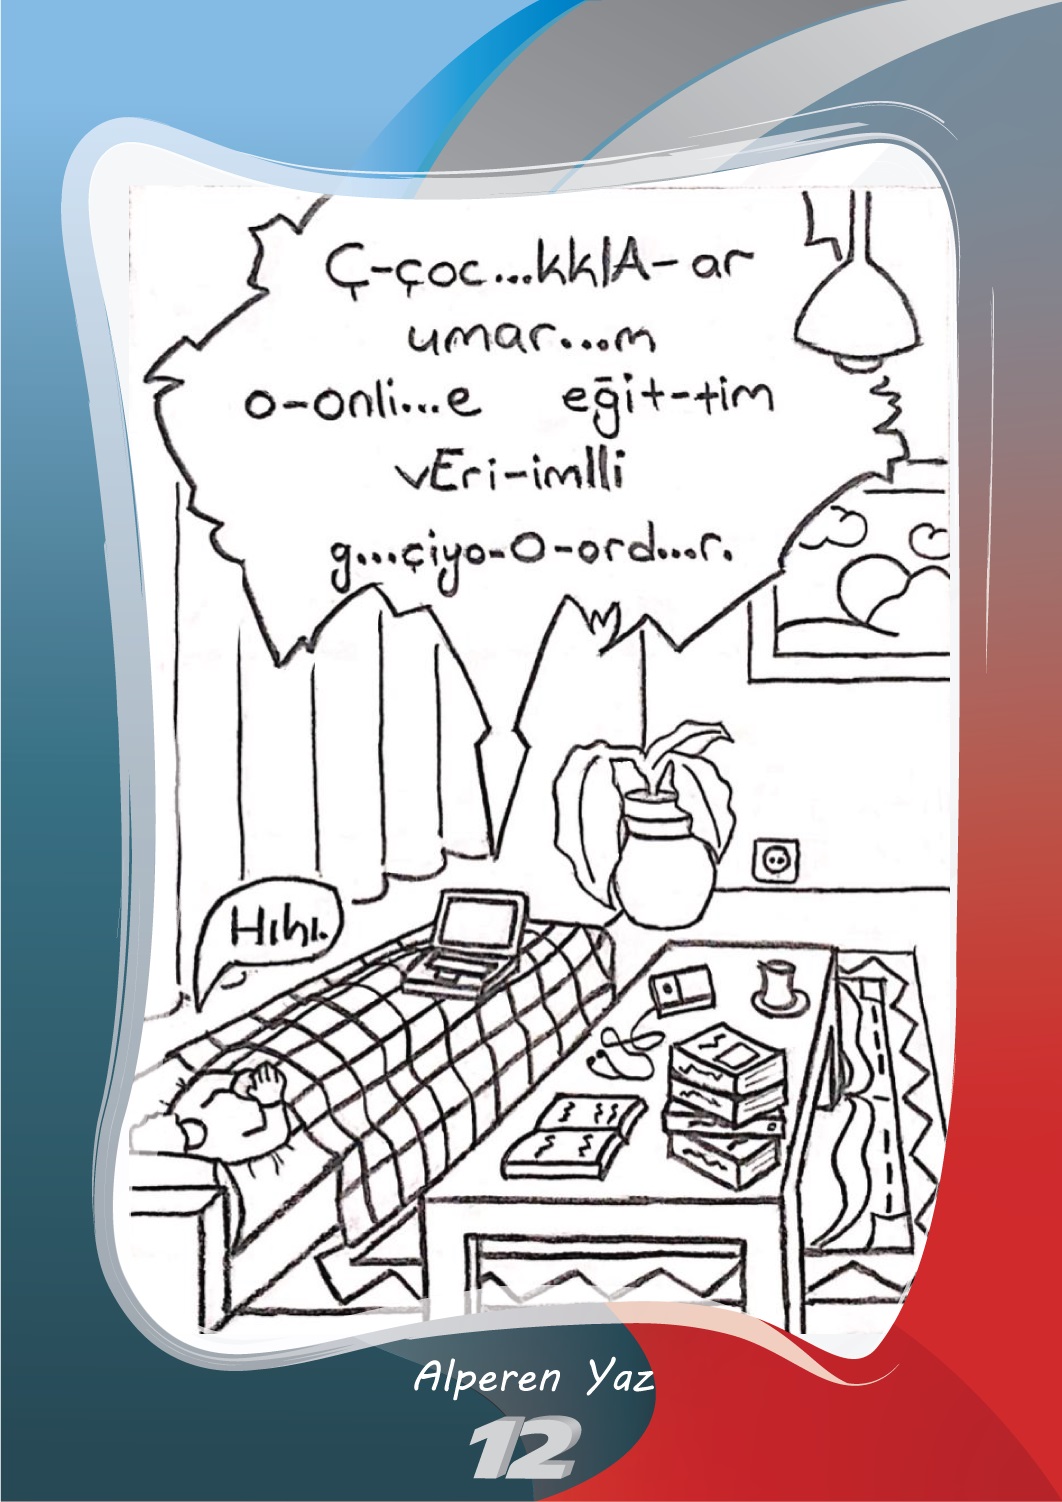 Ç-çoc...kklA-ar
umar...m
o-onli...e eğit-tim
vEri-imlli
g...çiyo-O-ord...r.
Hıhı.
Alperen Yaz
12